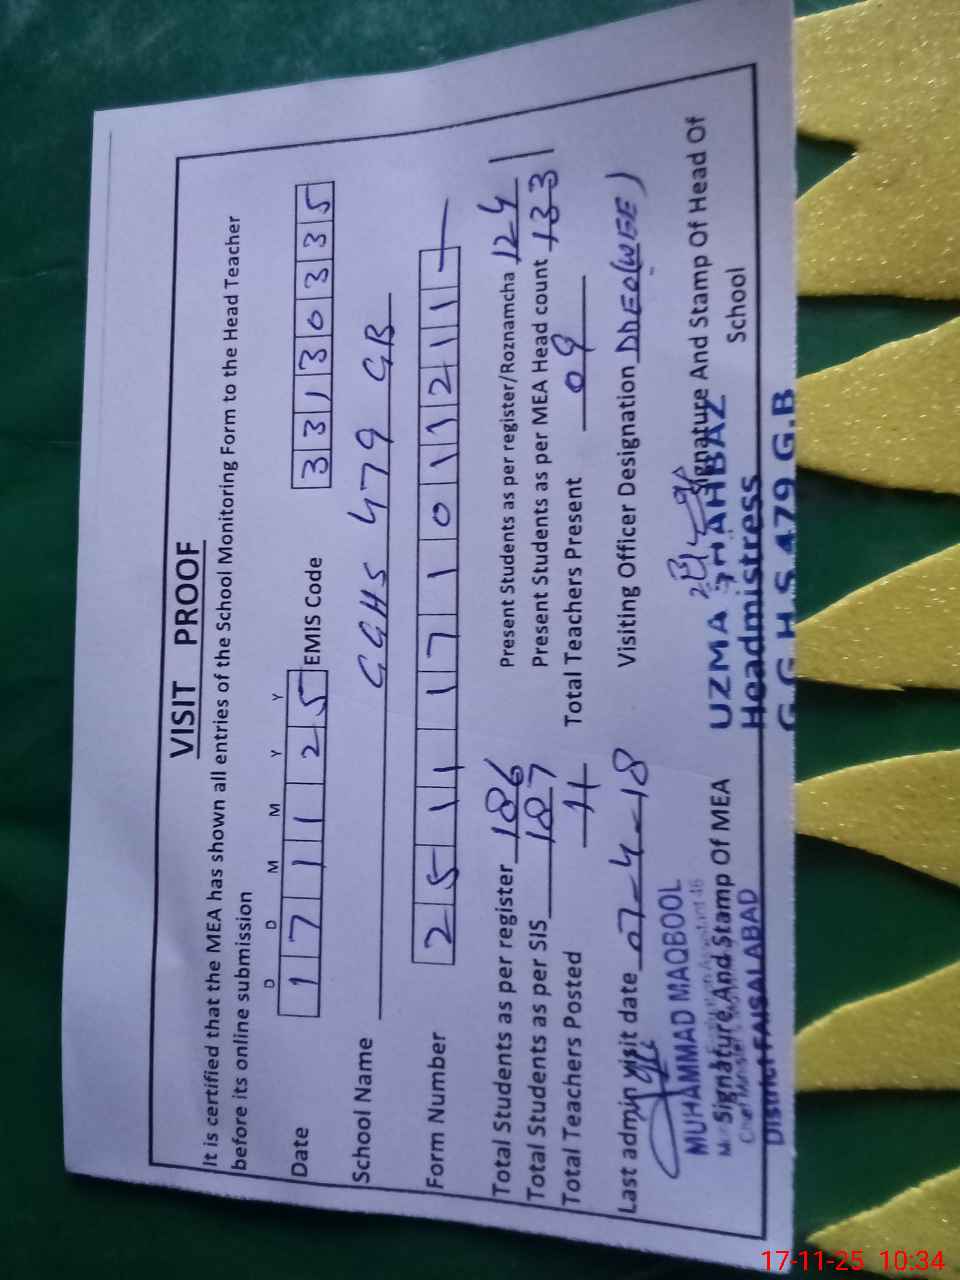 VISIT PROOF
It is certified that the MEA has shown all entries of the School Monitoring Form to the Head Teacher
before its online submission
D D M M Y Y
Date 1 7 1 1 2 5 EMIS Code 3 3 1 3 0 3 3 5
School Name GGHS 479 GB
Form Number 2 5 1 1 1 7 1 0 1 1 2 1 1
Total Students as per register 186 Present Students as per register/Roznamcha 124
Total Students as per SIS 187 Present Students as per MEA Head count 133
Total Teachers Posted 11 Total Teachers Present 09
Last admin visit date 07-4-18 Visiting Officer Designation DDEO(WEE)
MUHAMMAD MAQBOOL
Signature And Stamp Of MEA Signature And Stamp Of Head Of
School
District FAISALABAD
UZMA SHAHBAZ
Headmistress
G.G.H.S.479 G.B
17-11-25 10:34